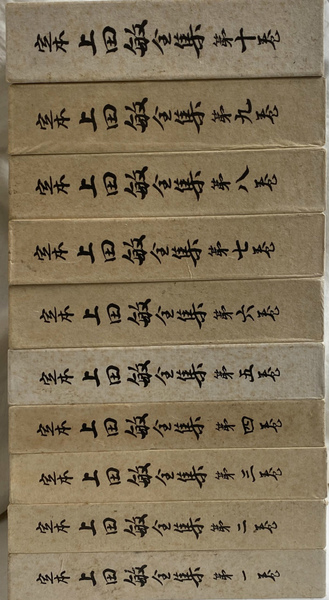 定本 上田敏全集 第十巻
定本 上田敏全集 第九巻
定本 上田敏全集 第八巻
定本 上田敏全集 第七巻
定本 上田敏全集 第六巻
定本 上田敏全集 第五巻
定本 上田敏全集 第四巻
定本 上田敏全集 第三巻
定本 上田敏全集 第二巻
定本 上田敏全集 第一巻